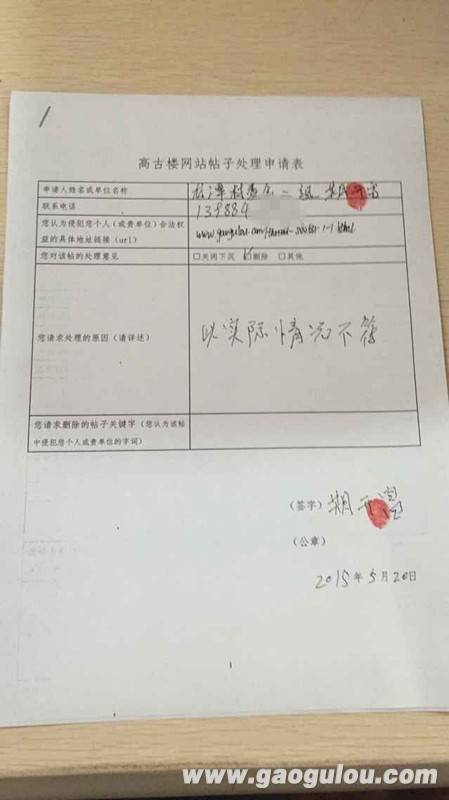 1
高古楼网站帖子处理申请表
申请人姓名或单位名称 村委会二组
联系电话 139884
您认为侵犯您个人(或贵单位)合法权
益的具体地址链接(url) www.gaogulou.com/thread- -1-1.html
您对该帖的处理意见 □关闭下沉 ☑删除 □其他
您请求处理的原因(请详述) 以实际情况不符
您请求删除的帖子关键字(您认为该帖
中侵犯您个人或贵单位的字词)
(签字)
(公章)
2015年5月20日
1
www.gaogulou.com